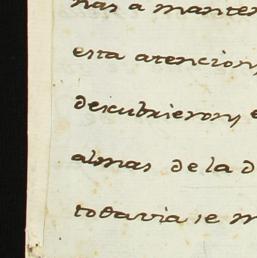 nas a manten
esta atencion,
descubrieron, e
almas de la d
todavia se m